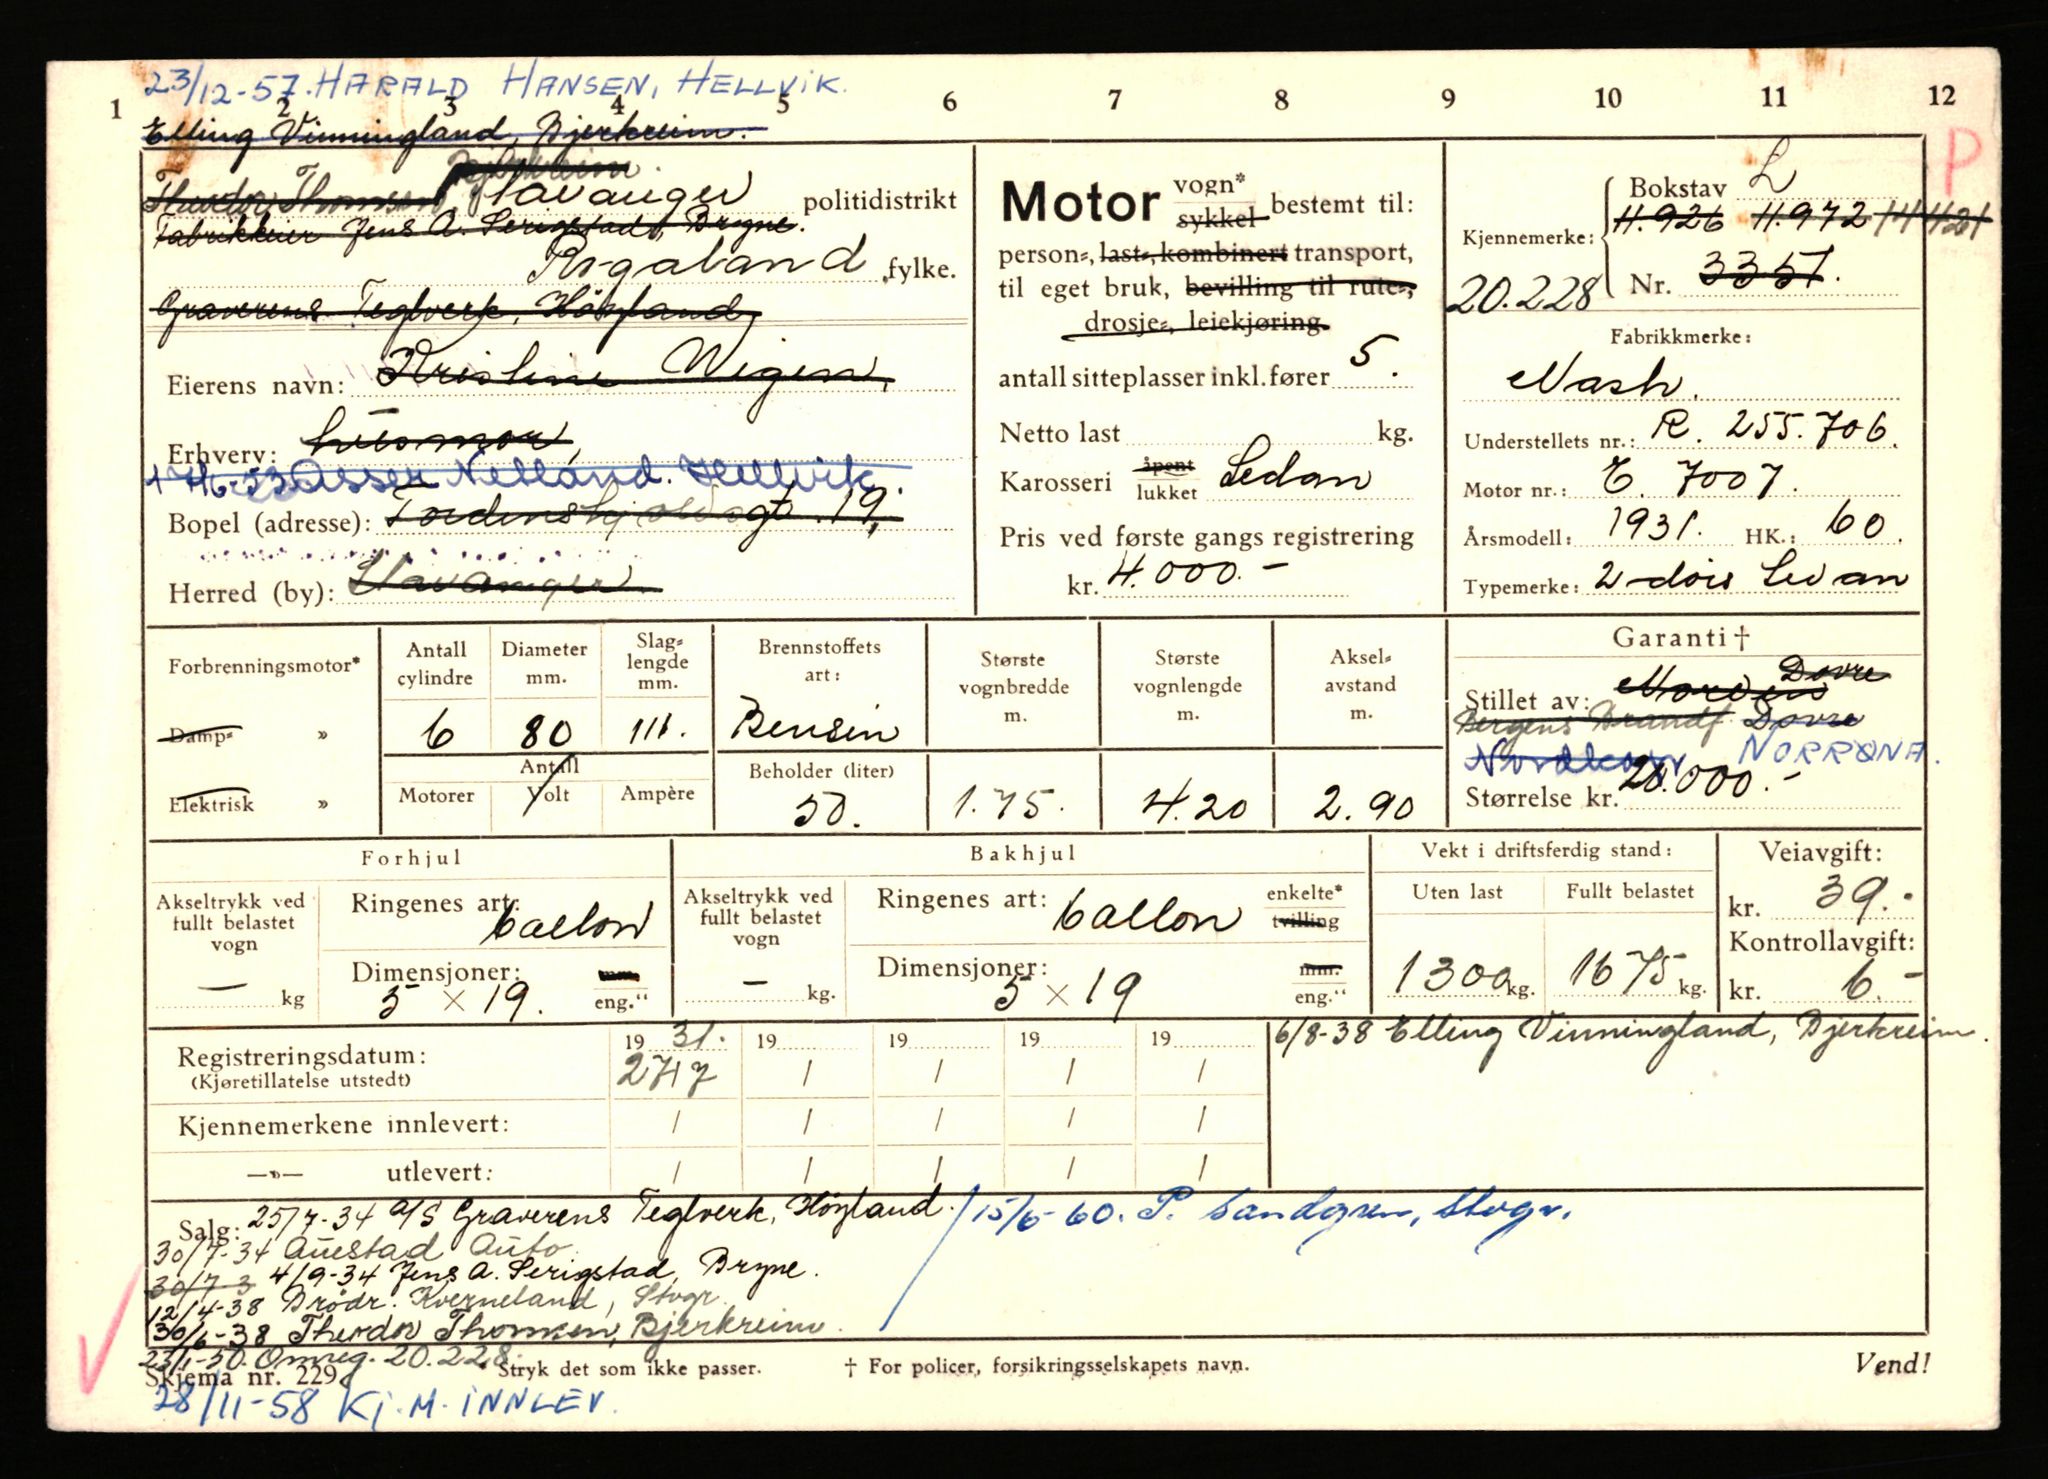 23/12-57. HARALD HANSEN, HELLVIK.
1 2 3 4 5 6 7 8 9 10 11 12
Elling Vinningland, Bjerkreim.
P
Bjerkreim
Theodor Thomsen, Stavanger politidistrikt
Fabrikkeier Jens A. Serigstad, Bryne.
Rogaland fylke.
Graverens Teglverk, Höyland
Eierens navn: Kristine Wigen,
Erhverv: husmor,
Asser Nelland. Hellvik.
Bopel (adresse): Tordenskjoldsgt. 19,
Herred (by): Stavanger
Motor vogn* sykkel bestemt til:
person=, last=, kombinert transport,
til eget bruk, bevilling til rute=,
drosje=, leiekjøring.
antall sitteplasser inkl. fører 5.
Netto last kg.
Karosseri åpent lukket Sedan
Pris ved første gangs registrering
kr. 4.000.-
Bokstav L
Kjennemerke: 11.926 11.972 14421
20.228 Nr. 3357.
Fabrikkmerke:
Nash.
Understellets nr.: R. 255.706.
Motor nr.: E. 7007.
Årsmodell: 1931. HK.: 60.
Typemerke: 2-dörs Sedan
Forbrenningsmotor*
Damp= »
Elektrisk »
Antall cylindre
6
Diameter mm.
80
Slag=lengde mm.
111.
Antall
Motorer Volt Ampère
Brennstoffets art:
Bensin
Beholder (liter)
50.
Største vognbredde m.
1.75.
Største vognlengde m.
4.20
Aksel=avstand m.
2.90
Garanti †
Dovre
Stillet av: Norden
Bergens Brandf. Dovre
NORRØNA.
Størrelse kr. 20.000.-
Forhjul
Akseltrykk ved fullt belastet vogn
— kg
Ringenes art: ballon
Dimensjoner: 5 × 19. eng."
Bakhjul
Akseltrykk ved fullt belastet vogn
— kg.
Ringenes art: ballon enkelte* tvilling
Dimensjoner: 5 × 19 mm. eng."
Vekt i driftsferdig stand:
Uten last Fullt belastet
1300 kg. 1675 kg.
Veiavgift:
kr. 39.-
Kontrollavgift:
kr. 6.-
19 31. 19 19 19 19
Registreringsdatum: 27/7 / / / /
(Kjøretillatelse utstedt)
Kjennemerkene innlevert: / / / / /
—»— utlevert: / / / / /
6/8-38 Elling Vinningland, Bjerkreim.
Salg: 25/7-34 A/S Graverens Teglverk, Höyland. 15/6-60. P. Sandgren, Stvgr.
30/7-34 Auestad Auto.
30/7-3 4/9-34 Jens A. Serigstad, Bryne.
12/4-38 Brödr. Kverneland, Stvgr.
30/6-38 Theodor Thomsen, Bjerkreim.
23/1-50. Omreg. 20.228.
Skjema nr. 229 * Stryk det som ikke passer. † For policer, forsikringsselskapets navn. Vend!
28/11-58 Kj. M. INNLEV.